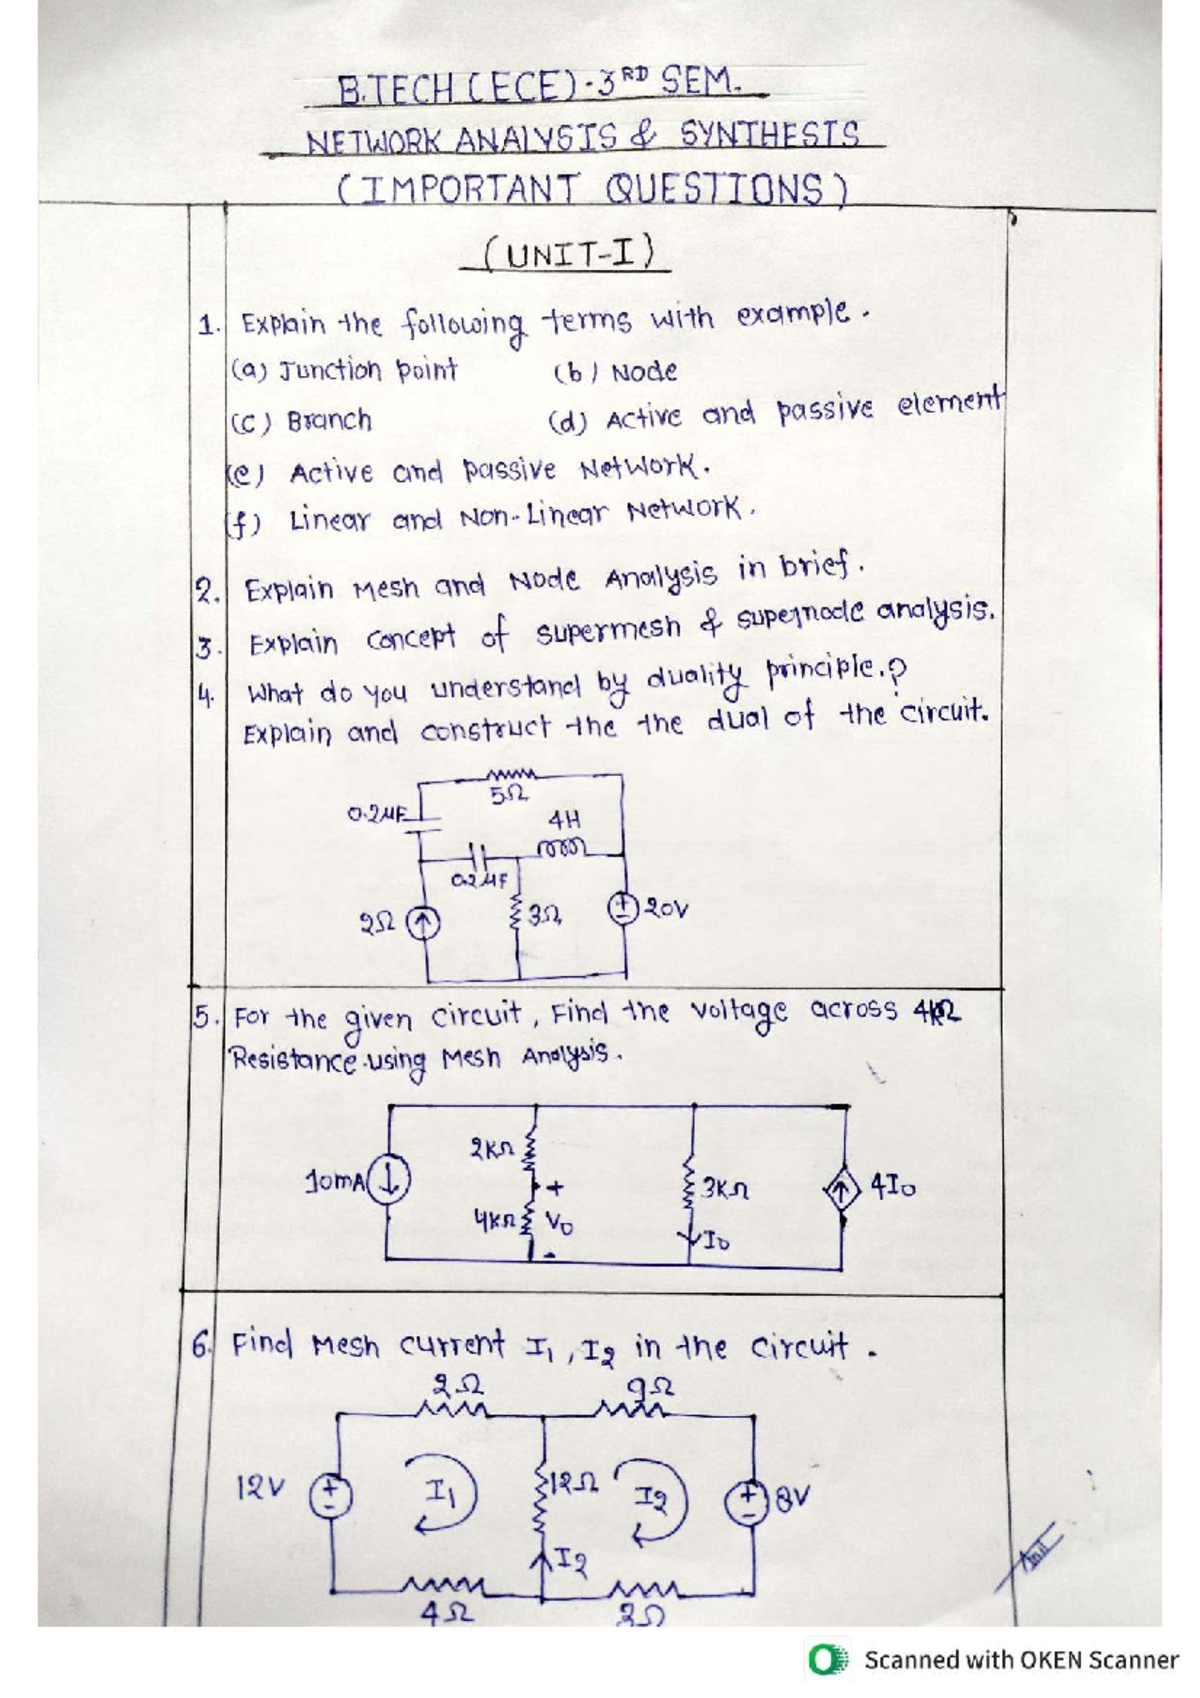 B.TECH (ECE)-3RD SEM.
NETWORK ANALYSIS & SYNTHESIS
(IMPORTANT QUESTIONS)
(UNIT-I)
1. Explain the following terms with example.
(a) Junction point (b) Node
(c) Branch (d) Active and passive element
(e) Active and passive Network.
(f) Linear and Non-Linear Network.
2. Explain Mesh and Node Analysis in brief.
3. Explain concept of supermesh & supernode analysis.
4. What do you understand by duality principle.?
Explain and construct the the dual of the circuit.
5Ω
0.2μF
4H
0.2μF
2Ω
3Ω
20V
5. For the given circuit, Find the voltage across 4kΩ
Resistance using Mesh Analysis.
2KΩ
10mA
+
3KΩ
4I0
4KΩ
V0
I0
-
6. Find Mesh current I1, I2 in the circuit.
2Ω
9Ω
12V
I1
12Ω
I2
8V
I2
4Ω
3Ω
Scanned with OKEN Scanner